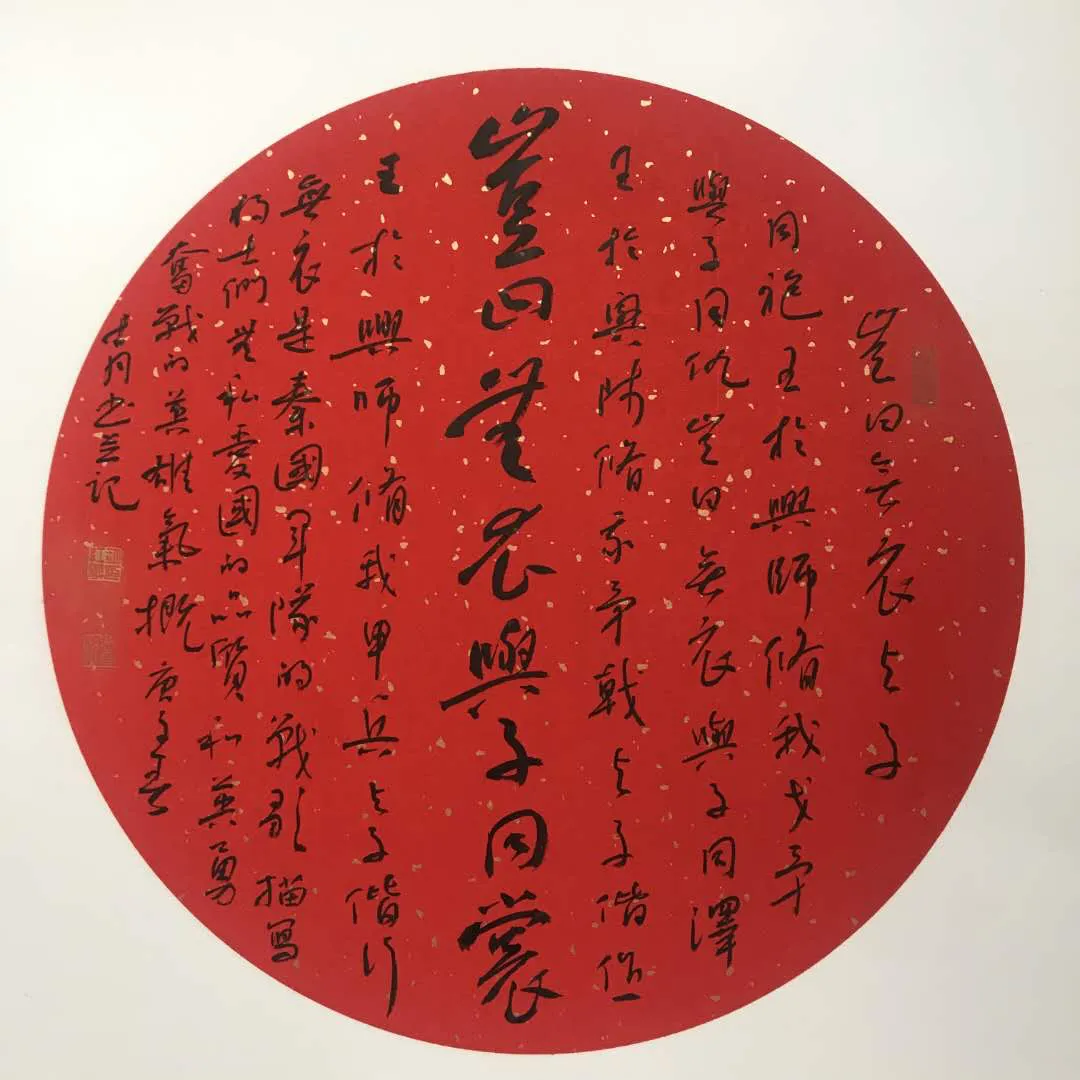 豈曰無衣与子
同袍王於興師脩我戈矛
與子同仇豈曰無衣與子同澤
王於興師脩我矛戟与子偕作
豈曰無衣與子同裳
王於興師脩我甲兵与子偕行
無衣是秦國軍隊的戰歌描寫
將士們無私愛國的品質和英勇
奮戰的英雄氣概庚子春
古月書並記